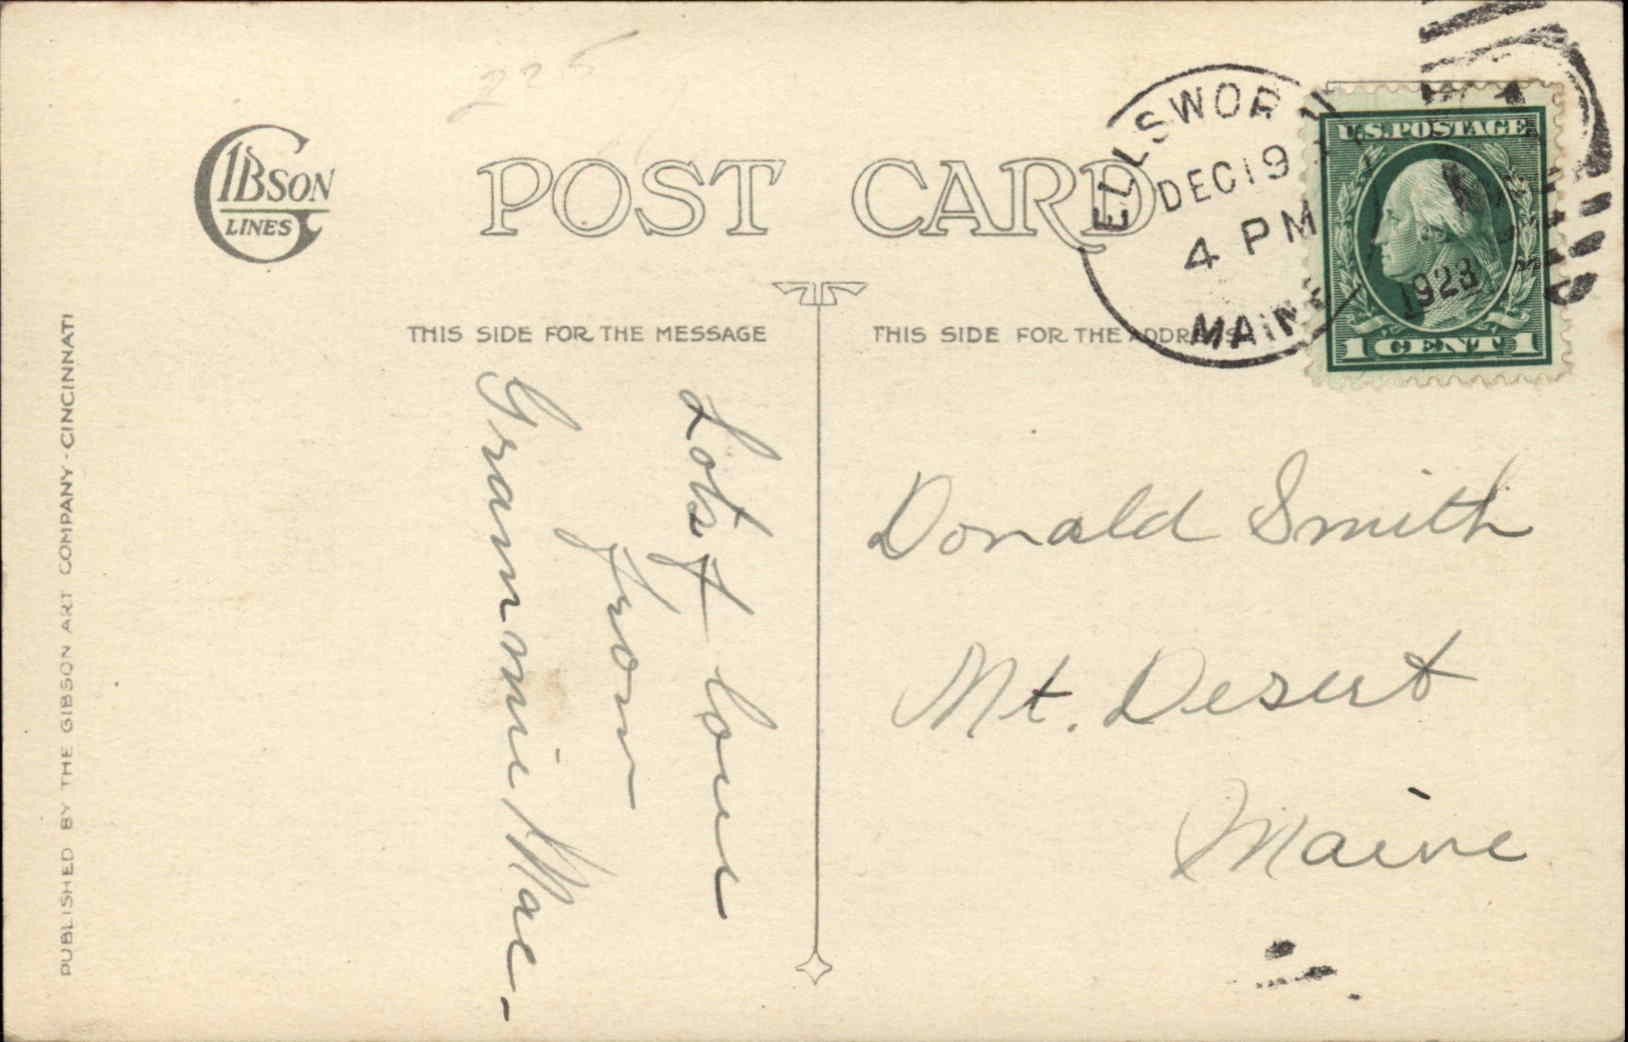 225
GIBSON
LINES
POST CARD
ELLSWORTH
DEC 19
4 PM
1923
MAINE
U.S. POSTAGE
1 CENT 1
THIS SIDE FOR THE MESSAGE
THIS SIDE FOR THE ADDRESS
Lots of love
from
Grammie Mac-
Donald Smith
Mt. Desert
Maine
PUBLISHED BY THE GIBSON ART COMPANY-CINCINNATI